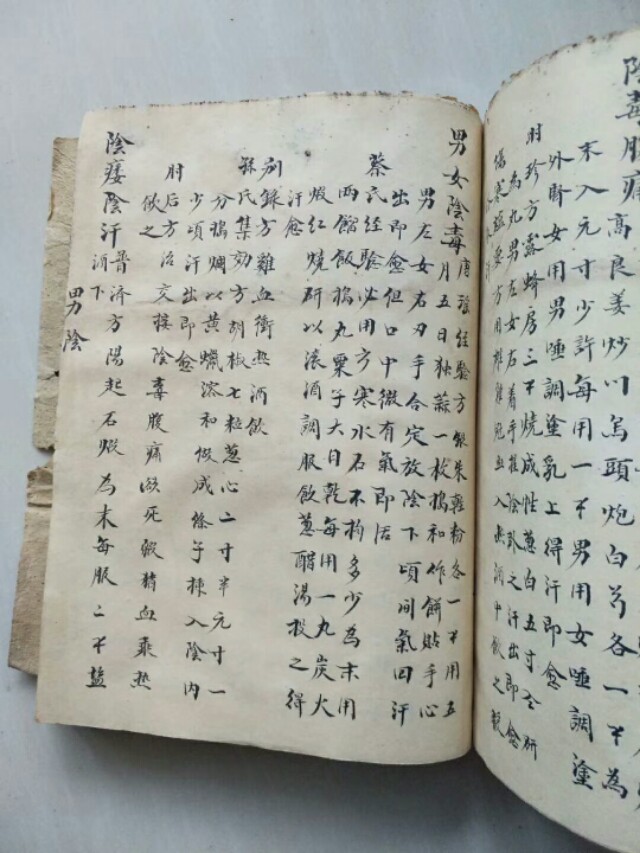 陰毒腹痛高良姜炒川烏頭炮白芍各一為
末入元寸少許每用一男用女唾調塗
外腎女用男唾調塗乳上得汗即愈
肘珍方露蜂房三燒成性葱白五寸仝研
為丸男左女右着手握陰卧之汗出即愈
傷寒蘊要方用雄雞冠血入热酒中飲之
男女陰毒唐瑤經驗方銀朱輕粉各一用五
月五日独蒜一枚搗和作餅貼手心
男左女右刃手合定放陰下頃间氣回汗
出即愈但口中微有氣即活
蔡氏經驗必用方寒水石不拘多少為末用
两餾飯搗丸栗子大日乾每用一丸炭火
煅红燒研以滚酒調服飲葱醋湯投之得
汗愈
别錄方雞血衝热酒飲
孫氏集効方胡椒七粒葱心二寸半元寸一
分搗爛以黄蠟溶和做成條子揀入陰内
少頃汗出即愈
肘后方治交接陰毒腹痛欲死豭猪血乘热
飲之
陰痿陰汗普济方陽起石煅為末每服二盐
酒下
男陰